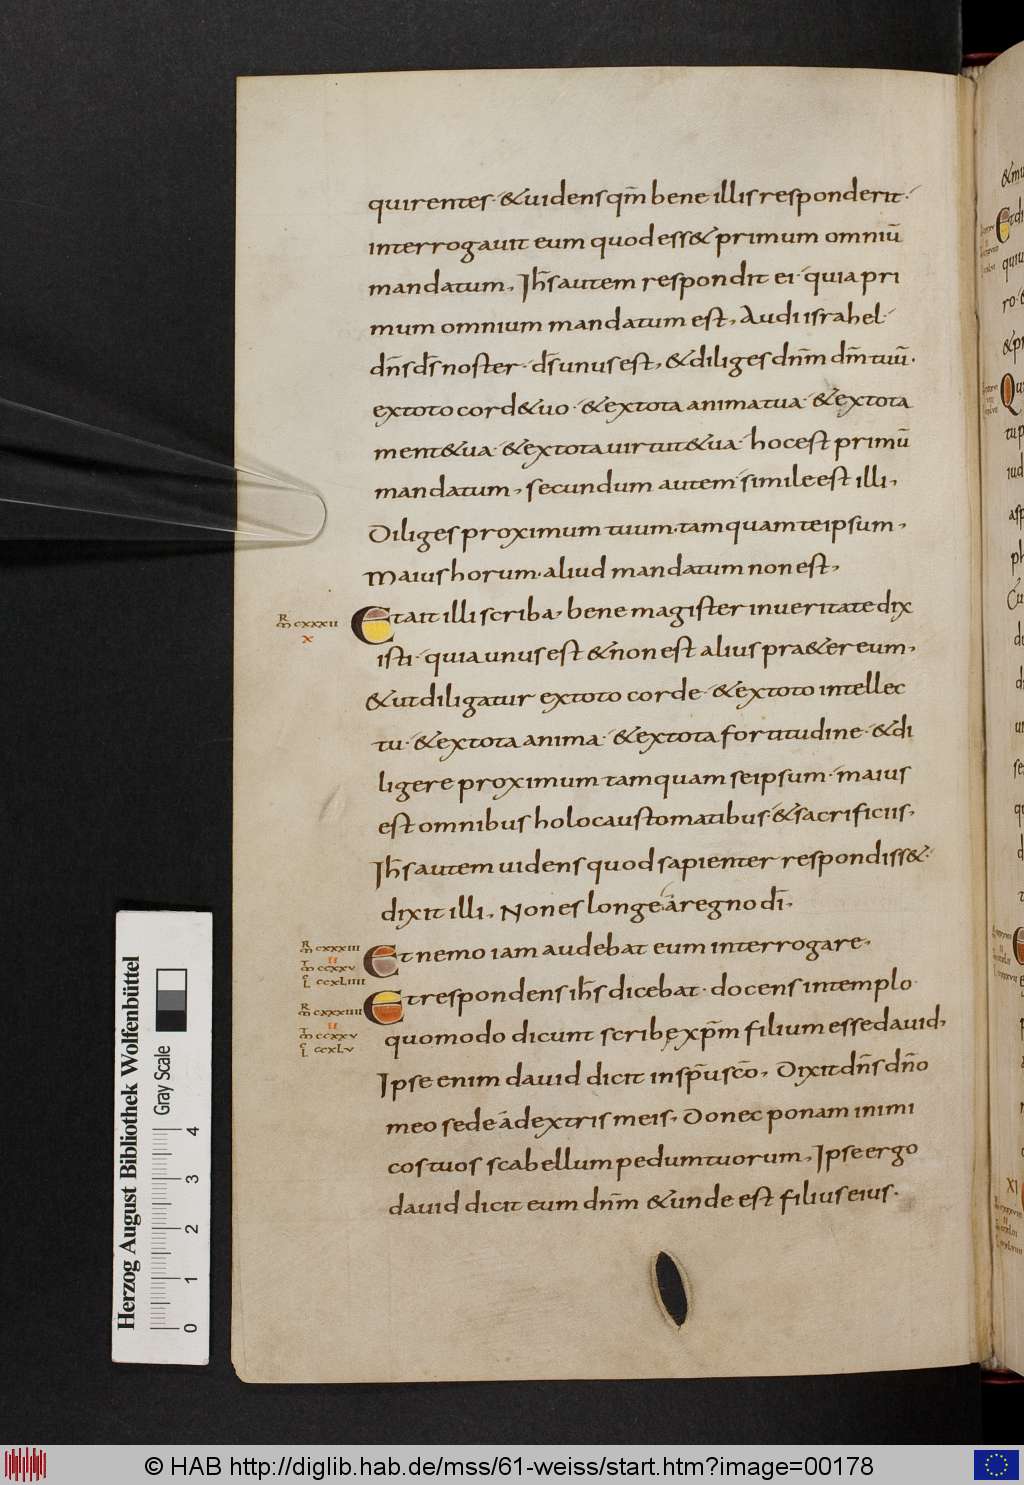 quirentes· &uidens qm̄ bene illis responderit·
interrogauit eum quod ess& primum omniū
mandatum, Ih̄s autem respondit ei· quia pri
mum omnium mandatum est, Audi israhel·
dn̄s ds̄ noster· ds̄ unus est, &diliges dnm̄ dm̄ tuū·
ex toto cord& uo· &ex tota anima tua· &ex tota
ment& ua· &ex tota uirtut& ua· hoc est primū
mandatum, secundum autem simile est illi,
Diliges proximum tuum· tamquam te ipsum,
Maius horum· aliud mandatum non est,
R
m̄ CXXXII
X
Et ait illi scriba, bene magister in ueritate dix
isti· quia unus est &non est alius pra&er eum,
&ut diligatur ex toto corde· &ex toto intellec
tu· &ex tota anima· &ex tota fortitudine· &di
ligere proximum tamquam se ipsum· maius
est omnibus holocaustomatibus· &sacrificiis,
Ih̄s autem uidens quod sapienter respondiss&·
dixit illi, Non es longe á regno dī,
R
m̄ CXXXIII
II
T
m̄ CCXXV
C
L CCXLIIII
Et nemo iam audebat eum interrogare,
R
m̄ CXXXIIII
II
T
m̄ CCXXV
C
L CCXLV
Et respondens ih̄s dicebat· docens in templo
quomodo dicunt scribę xp̄m filium esse dauid,
Ipse enim dauid dicit in sp̄u scō, Dixit dn̄s dn̄o
meo sede á dextris meis, Donec ponam inimi
cos tuos scabellum pedum tuorum, Ipse ergo
dauid dicit eum dn̄m &unde est filius eius·
XI
Herzog August Bibliothek Wolfenbüttel
Gray Scale
0 1 2 3 4
© HAB http://diglib.hab.de/mss/61-weiss/start.htm?image=00178